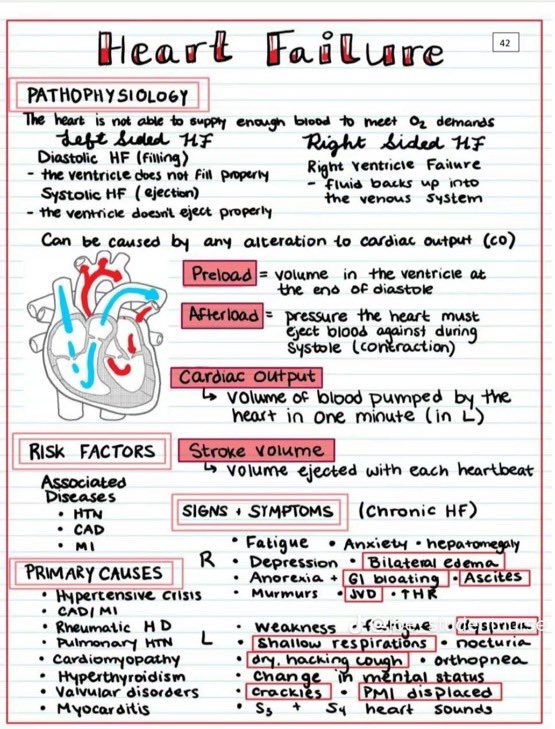 Heart Failure
42
PATHOPHYSIOLOGY
The heart is not able to supply enough blood to meet O₂ demands
Left Sided HF
Diastolic HF (filling)
- the ventricle does not fill properly
Systolic HF (ejection)
- the ventricle doesn't eject properly
Right Sided HF
Right Ventricle Failure
- fluid backs up into
the venous system
Can be caused by any alteration to cardiac output (CO)
Preload = volume in the ventricle at
the end of diastole
Afterload = pressure the heart must
eject blood against during
systole (contraction)
Cardiac Output
↳ volume of blood pumped by the
heart in one minute (in L)
Stroke volume
↳ volume ejected with each heartbeat
RISK FACTORS
Associated
Diseases
• HTN
• CAD
• MI
PRIMARY CAUSES
• Hypertensive Crisis
• CAD/MI
• Rheumatic HD
• Pulmonary HTN
• Cardiomyopathy
• Hyperthyroidism
• Valvular disorders
• Myocarditis
SIGNS + SYMPTOMS (Chronic HF)
R
• Fatigue • Anxiety • hepatomegaly
• Depression • Bilateral edema
• Anorexia + GI bloating • Ascites
• Murmurs • JVD • ↑HR
L
• Weakness • fatigue • dyspnea
• Shallow respirations • nocturia
• dry, hacking cough • orthopnea
• Change in mental status
• Crackles • PMI displaced
• S₃ + S₄ heart sounds